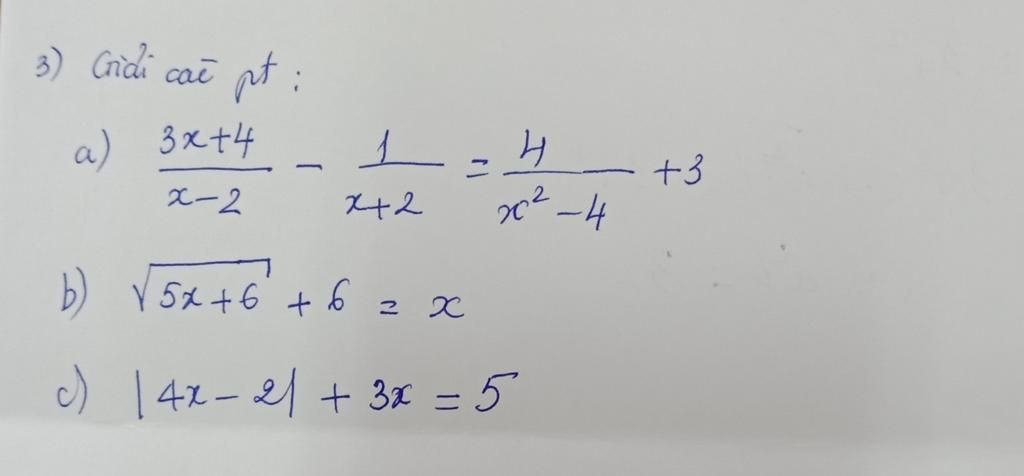 3) Giải các pt :
a) \frac{3x+4}{x-2} - \frac{1}{x+2} = \frac{4}{x^2-4} +3
b) \sqrt{5x+6} + 6 = x
c) |4x-2| + 3x = 5